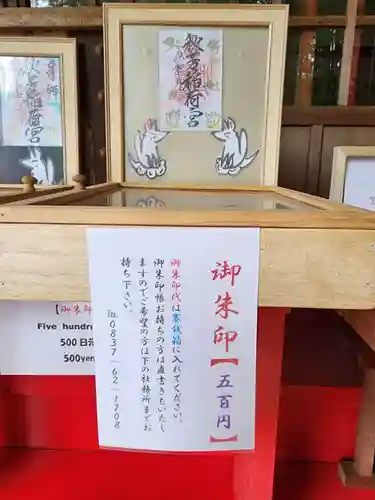 御朱印【五百円】
御朱印代は賽銭箱に入れてください。
御朱印帳お持ちの方は直書きもいたし
ますのでご希望の方は下の社務所までお
持ち下さい。
℡0837-62-1708
【御朱印
Five hundred
500日元
500yen